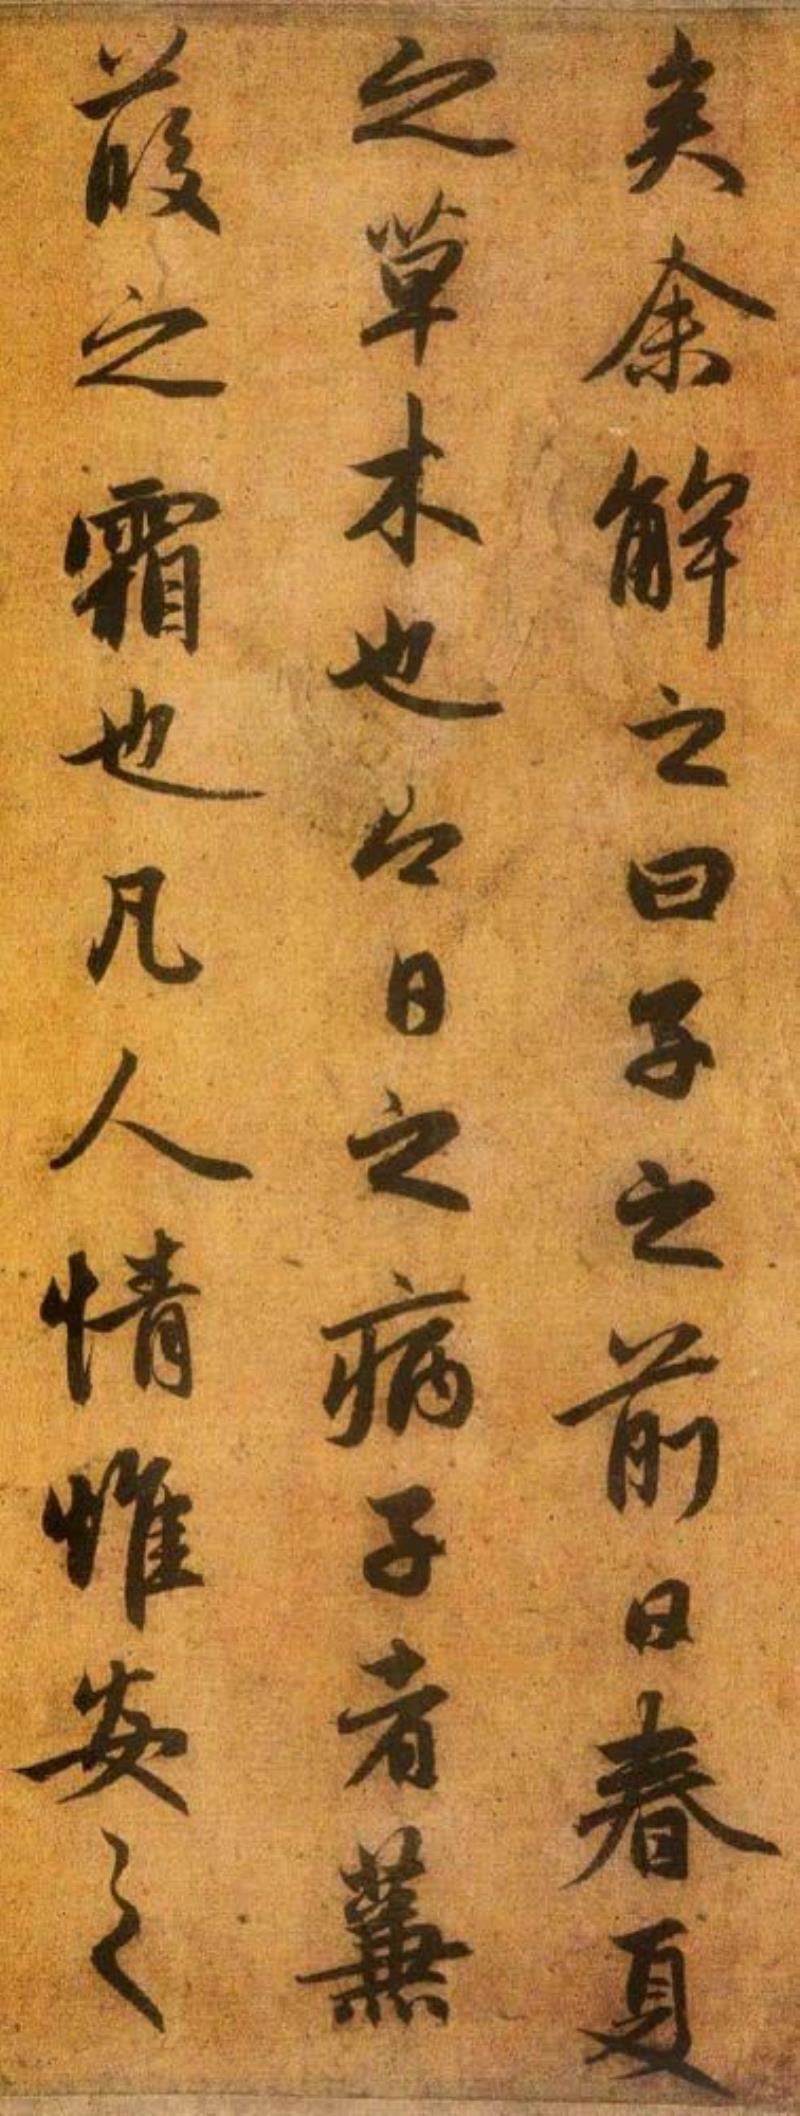 矣余解之曰子之前日春夏
之草木也今日之病子者蒹
葭之霜也凡人情惟安之